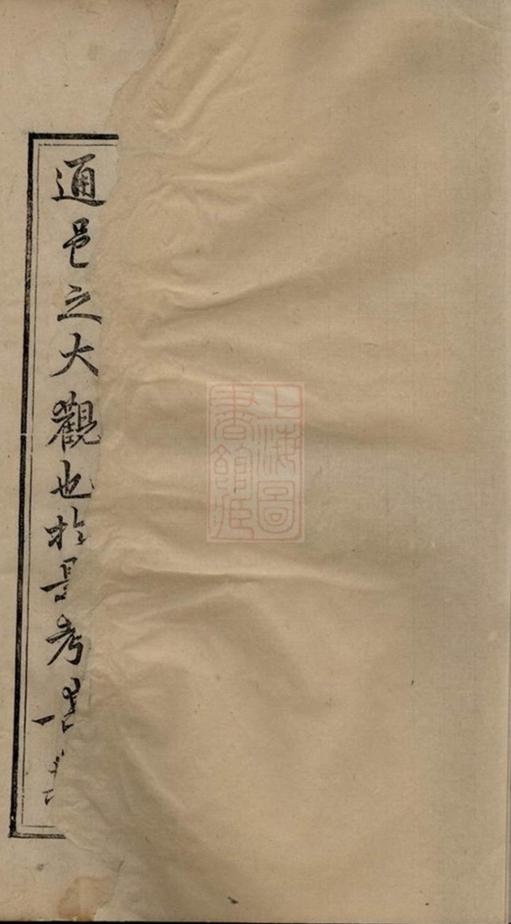 上海圖
書館藏
通邑之大觀也於是考